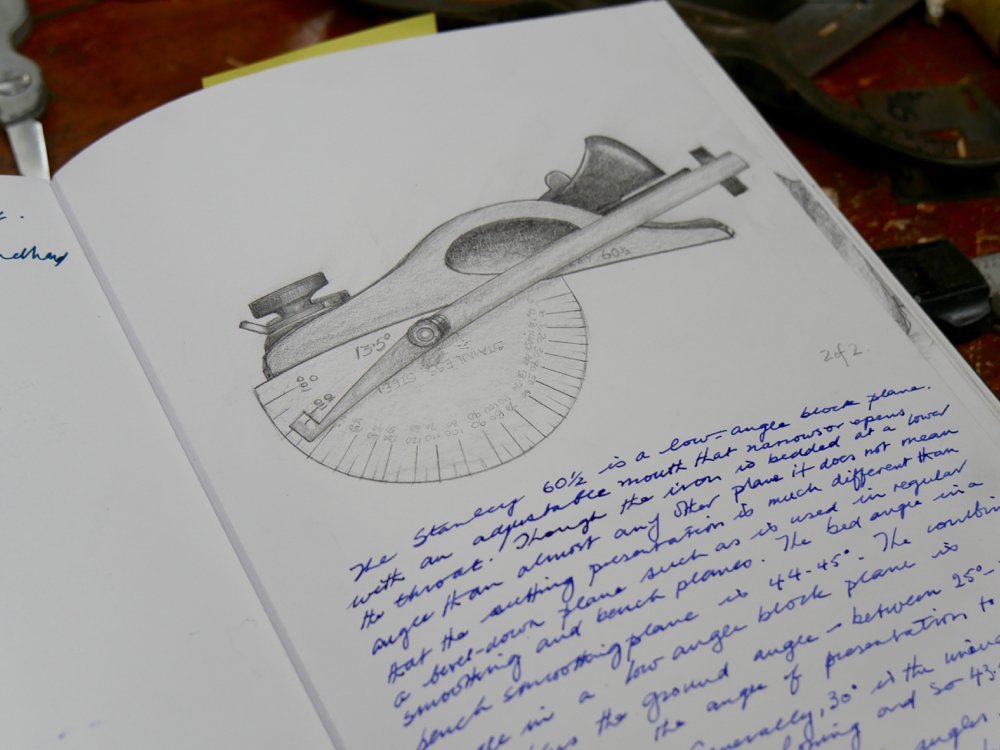 13.5°
STAINLESS STEEL
60½
2 of 2.
The Stanley 60½ is a low-angle block plane.
with an adjustable mouth that narrows or opens
the throat. Though the iron is bedded at a lower
angle than almost any other plane it does not mean
that the cutting presentation is much different than
a bevel-down plane such as is used in regular
smoothing and bench planes. The bed angle in a
bench smoothing plane is 44-45°. The combin
in a low angle block plane is
the ground angle - between 25°-
the angle of presentation to
Generally, 30° is the
and so 43.
angles,